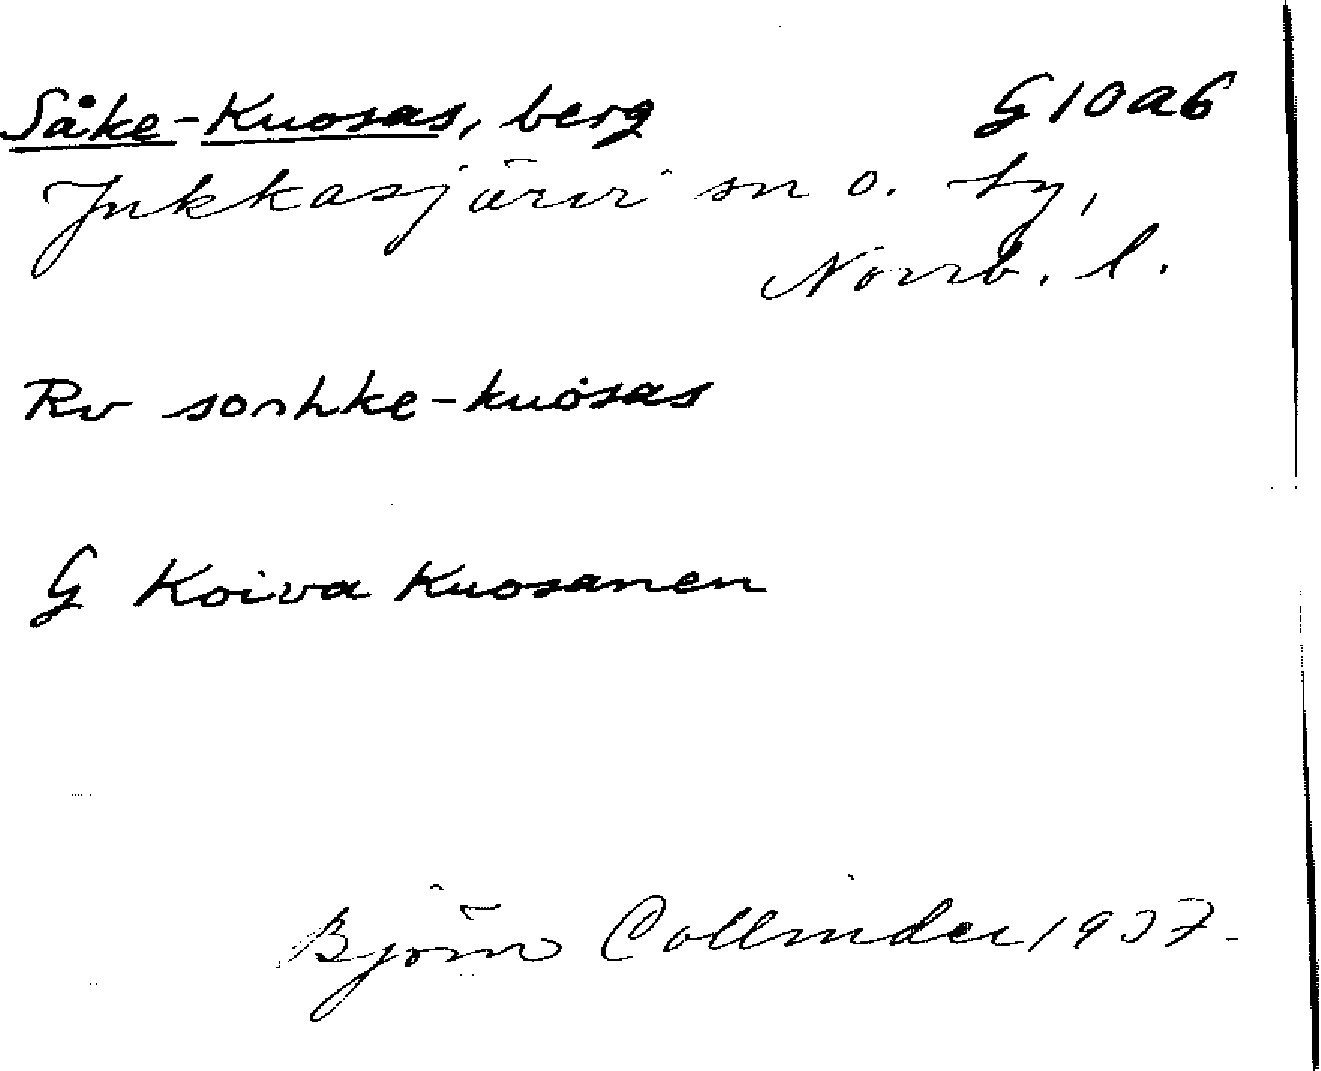 Såke-Kuosas, berg G10a6
Jukkasjärvi sn o. ty,
Norrb. l.
Rv sohke-kuosas
G Koiva Kuosanen
Björn Collinder 1937